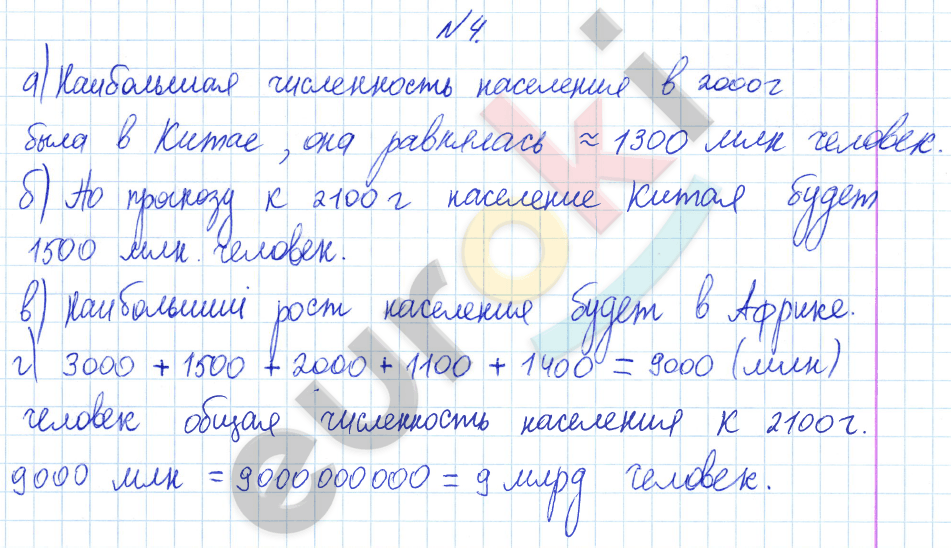 №4.
а) Наибольшая численность населения в 2000г
была в Китае, она равнялась ≈ 1300 млн человек.
б) По прогнозу к 2100г население Китая будет
1500 млн. человек.
в) Наибольший рост населения будет в Африке.
г) 3000 + 1500 + 2000 + 1100 + 1400 = 9000 (млн)
человек общая численность населения к 2100г.
9000 млн = 9000000000 = 9 млрд человек.
euroki